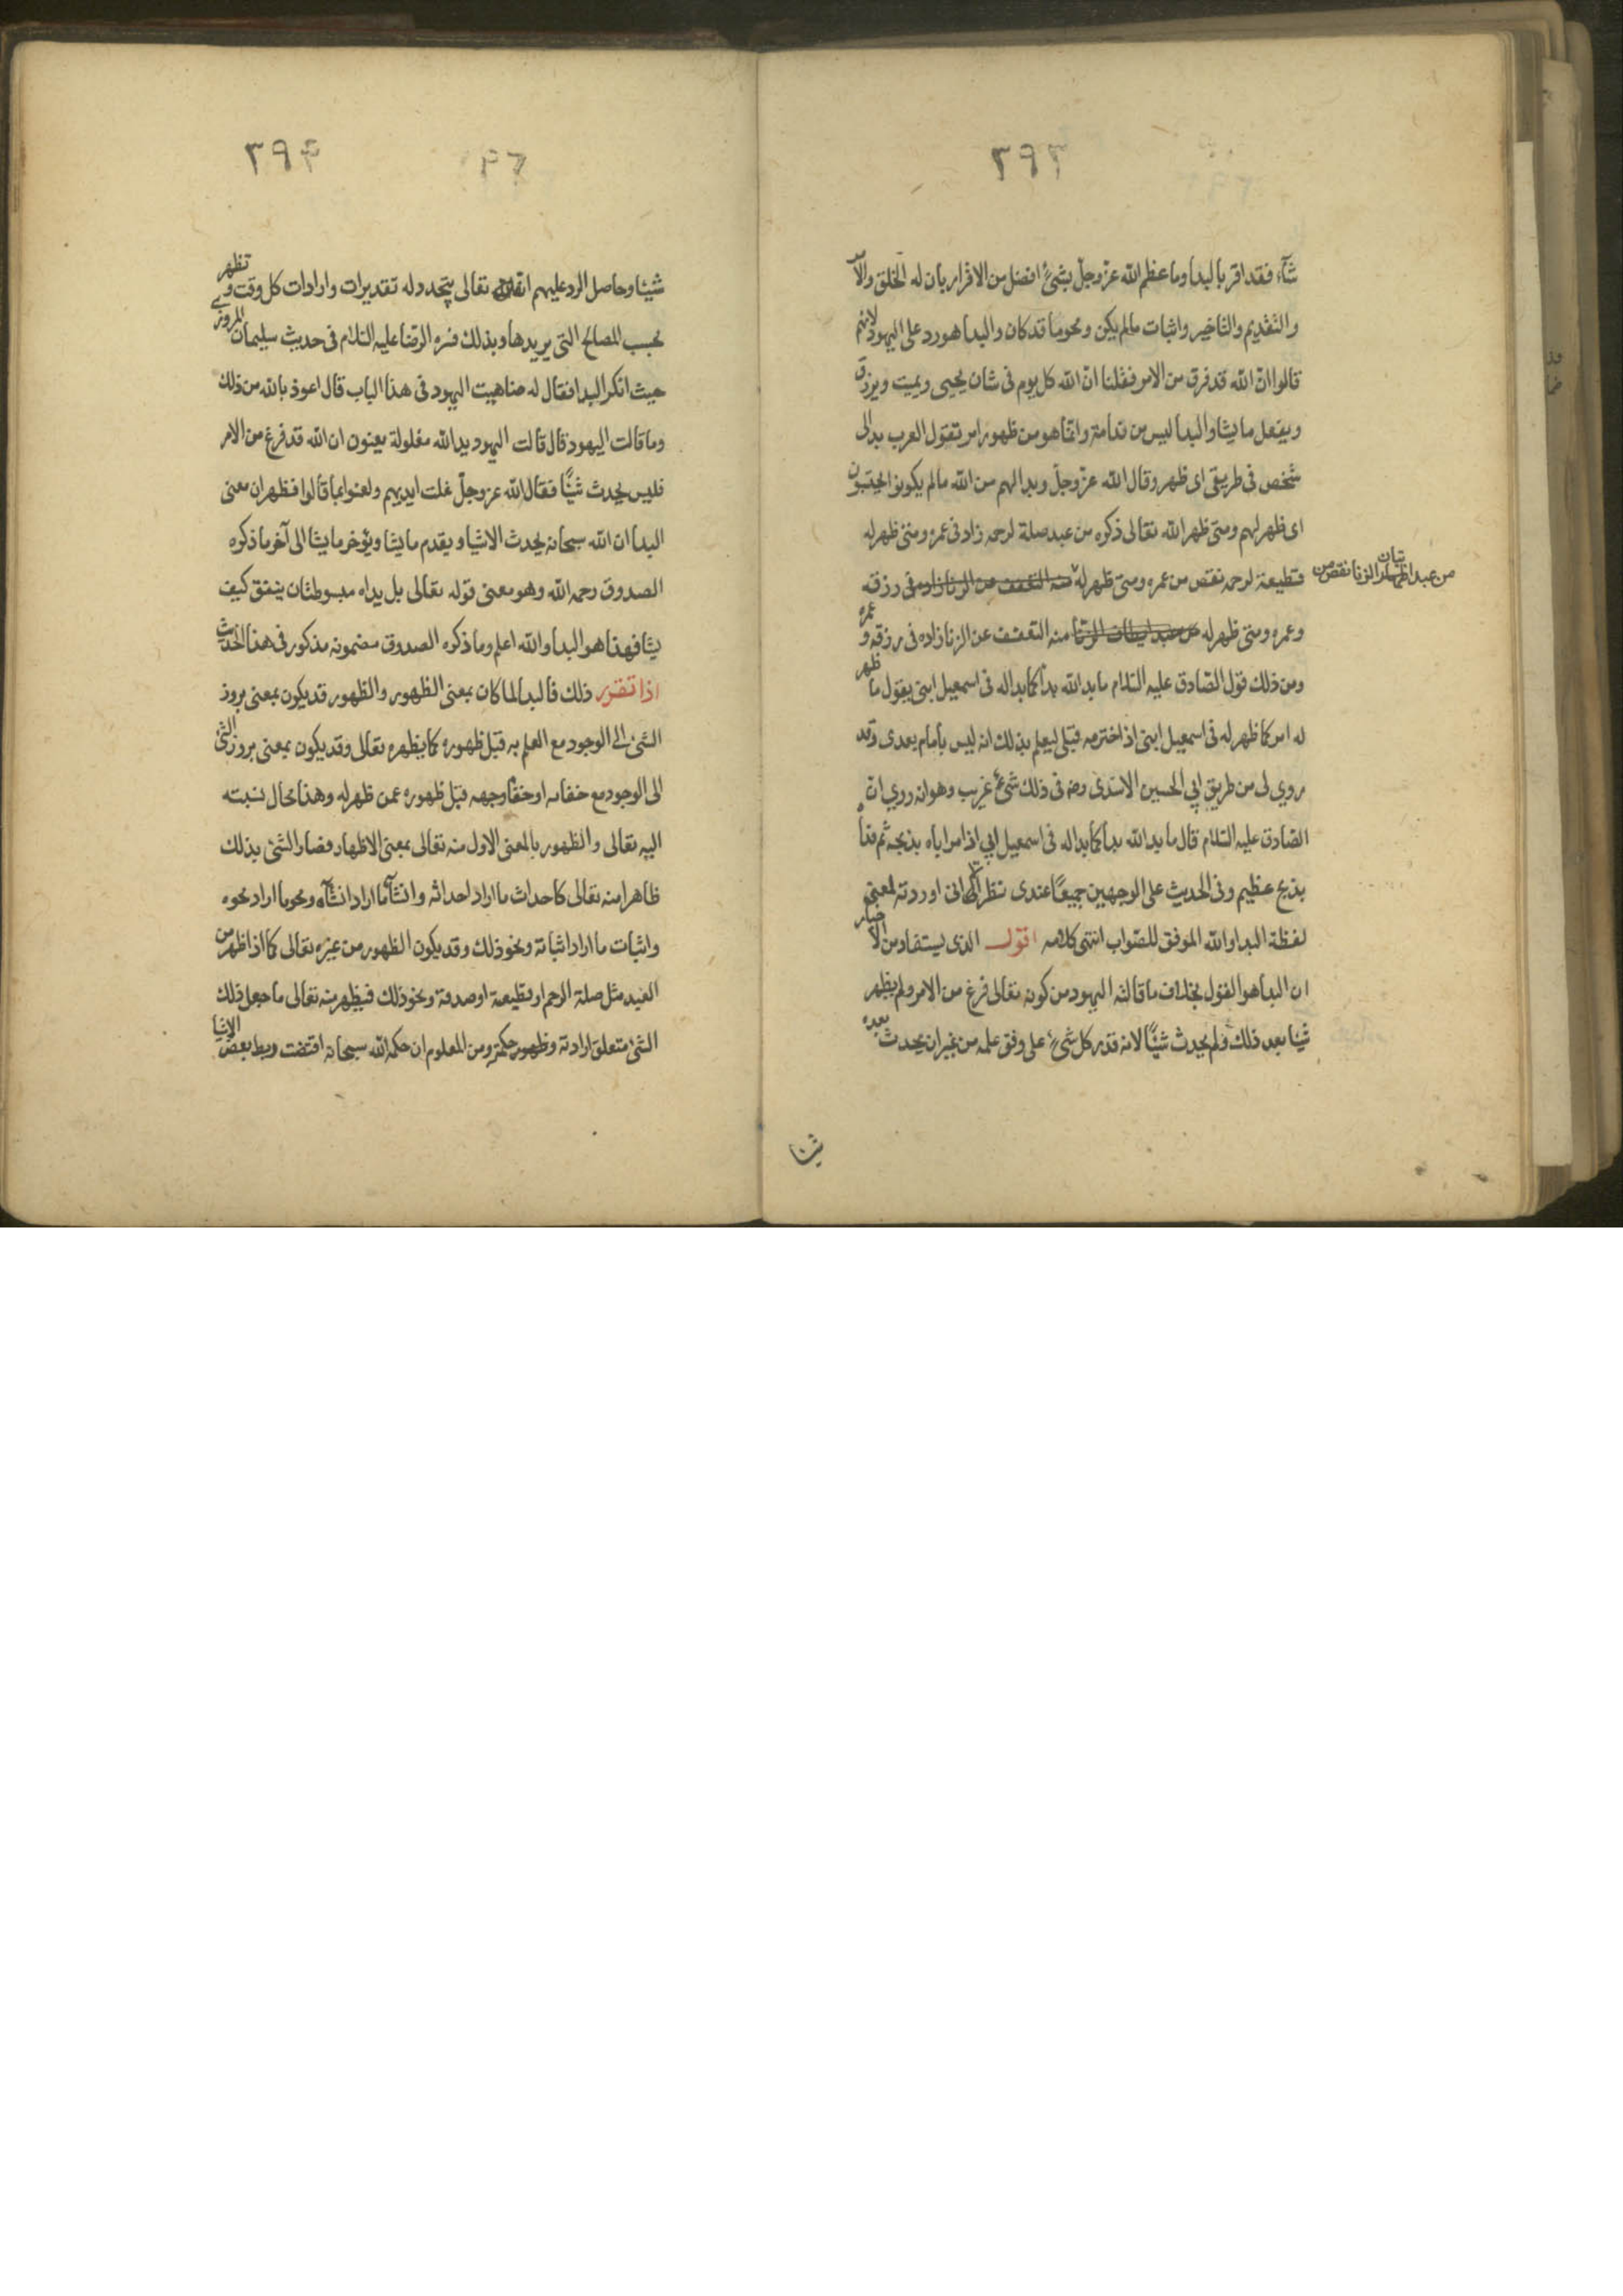 ٢٩٣
شآء فقد اقر بالبدا وما عظم الله عزّ وجلّ بشئ افضل من الاقرار بان له الخلق والامر
والتقديم والتاخير واثبات ما لم يكن ومحو ما قد كان والبدا هو رد على اليهود لانهم
قالوا انّ الله قد فرق من الامر فقلنا انّ الله كل يوم فى شان يحيى ويميت ويرزق
ويفعل ما يشا والبدا ليس من ندامة وانّما هو من ظهور امر تقول العرب بدا لى
شخص فى طريقى اى ظهر وقال الله عزّ وجلّ وبدا لهم من الله ما لم يكونوا يحتسبون
اى ظهر لهم ومتى ظهر الله تعالى ذكره من عبد صلة لرحمه زاد فى عمره ومتى ظهر له
قطيعة لرحمه نقص من عمره ومتى ظهر له منه التعفف عن الزنا زاده فى رزقه
من عبد اظهار اتيان الزنا نقص من
وعمره ومتى ظهر له من عبد ايطان الزنا منه التعفف عن الزنا زاده فى رزقه وعمره
ومن ذلك قول الصّادق عليه السّلام ما بدا لله بدآ كما بدا له فى اسمعيل ابنى يقول ما ظهر
له امر كما ظهر له فى اسمعيل ابنى اذ اخترمه قبلى ليعلم بذلك انه ليس بامام بعدى وقد
روي لى من طريق ابي الحسين الاسدى رضه فى ذلك شئ غريب وهو انه روي ان
الصّادق عليه السّلام قال ما بدا لله بدآ كما بدا له فى اسمعيل ابي اذ امر اباه بذبحه ثم فداه
بذبح عظيم وفى الحديث على الوجهين جميعًا عندى نظر الا انى اوردته لمعنى
لفظة البدا والله الموفق للصّواب انتهى كلامه اقول الذى يستفاد من الاخبار
ان البدا هو القول بخلاف ما قالته اليهود من كونه تعالى فرغ من الامر ولم يظهر
شيئا بعد ذلك ولم يحدث شيئًا لانه قدر كل شئ على وفق علمه من غير ان يحدث بعده
شيئا
٢٩٤
شيئا وحاصل الرد عليهم انه تعالى يتجدد له تقديرات وارادات كل وقت وتظهر
بحسب المصالح التى يريدها وبذلك فسره الرضا عليه السّلام فى حديث سليمان المروزى
حيث انكر البدا فقال له ضاهيت اليهود فى هذا الباب قال اعوذ بالله من ذلك
وما قالت اليهود قال قالت اليهود يد الله مغلولة يعنون ان الله قد فرغ من الامر
فليس يحدث شيئًا فقال الله عز وجلّ غلت ايديهم ولعنوا بما قالوا فظهر ان معنى
البدا ان الله سبحانه يحدث الاشيا ويقدم ما يشا ويؤخر ما يشا الى آخر ما ذكره
الصدوق رحمه الله وهو معنى قوله تعالى بل يداه مبسوطتان ينفق كيف
يشا فهذا هو البدا والله اعلم وما ذكره الصدوق مضمونه مذكور فى هذا الحديث
اذا تقرر ذلك فالبدا لما كان بمعنى الظهور والظهور قد يكون بمعنى بروز
الشئ الى الوجود مع العلم به قبل ظهوره كما يظهره تعالى وقد يكون بمعنى بروز الشئ
الى الوجود مع خفائه او خفآ وجهه قبل ظهوره عمن ظهر له وهذا محال نسبته
اليه تعالى والظهور بالمعنى الاول منه تعالى بمعنى الاظهار فصار الشئ بذلك
ظاهرا منه تعالى كاحداث ما اراد احداثه وانشآء ما اراد انشآه ومحو ما اراد محوه
واثبات ما اراد اثباته ونحو ذلك وقد يكون الظهور من غيره تعالى كما اذا ظهر من
العبد مثل صلة الرحم او قطيعة او صدقة ونحو ذلك فيظهر منه تعالى ما جعل ذلك
الشئ متعلق ارادته وظهور حكمته ومن المعلوم ان حكمة الله سبحانه اقتضت ربط بعض الاشيا